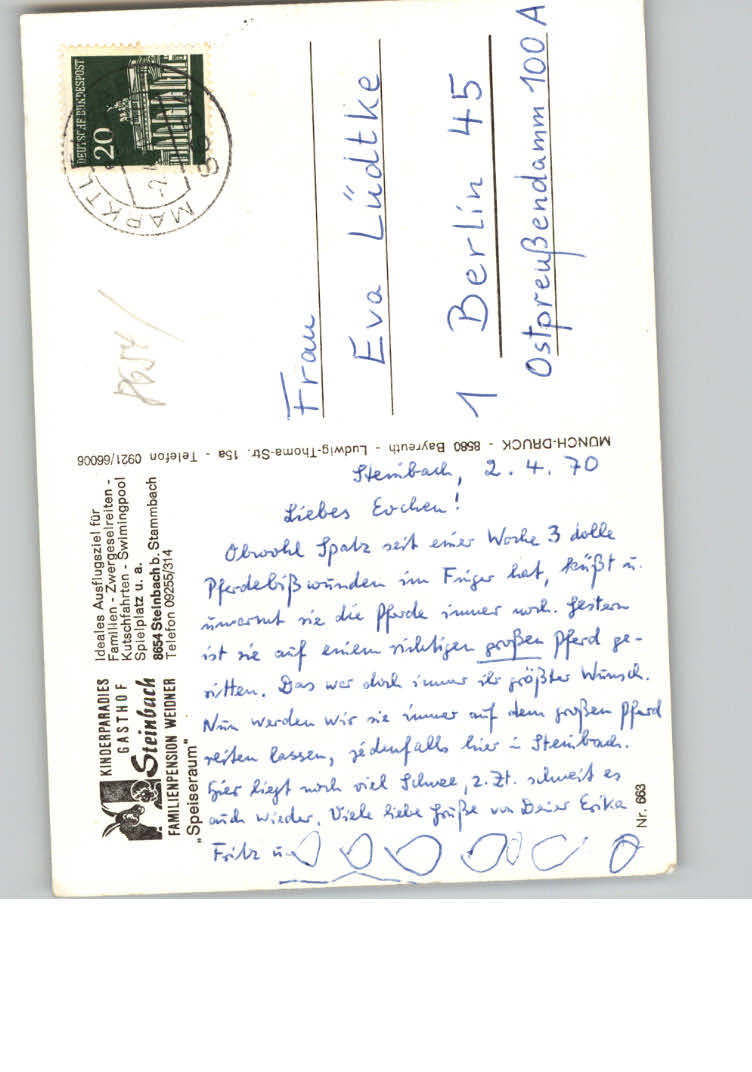 KINDERPARADIES
GASTHOF
Steinbach
FAMILIENPENSION WEIDNER
"Speiseraum"
Ideales Ausflugsziel für
Familien - Zwergeselreiten -
Kutschfahrten - Swimingpool
Spielplatz u. a.
8654 Steinbach b. Stammbach
Telefon 09255/314
Steinbach, 2. 4. 70
Liebes Evchen!
Obwohl Spatz seit einer Woche 3 dolle
Pferdebißwunden im Finger hat, küßt u.
umarmt sie die Pferde immer noch. Gestern
ist sie auf einem richtigen großen Pferd ge-
ritten. Das war doch immer ihr größter Wunsch.
Nun werden wir sie immer auf dem großen Pferd
reiten lassen, jedenfalls hier in Steinbach.
Hier liegt noch viel Schnee, z. Zt. schneit es
auch wieder. Viele liebe Grüße von Deiner Erika
Fritz u.
Nr. 663
MÜNCH-DRUCK - 8580 Bayreuth - Ludwig-Thoma-Str. 15a - Telefon 0921/66006
DEUTSCHE BUNDESPOST
20
MARKTL
Frau
Eva Lüdtke
1 Berlin 45
Ostpreußendamm 100 A